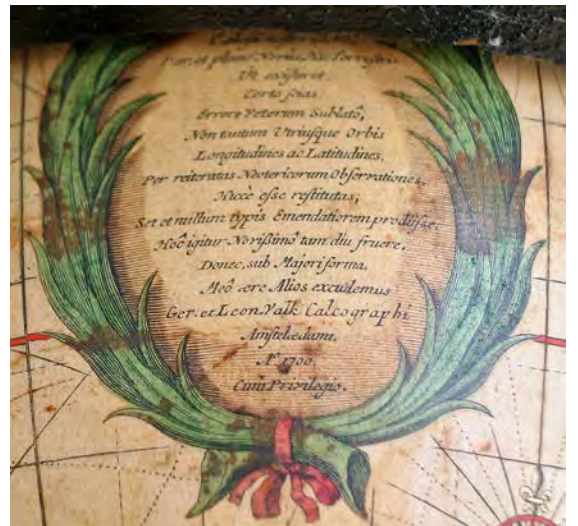 Par, et plane Novus hic Terrestris
Ut existeret.
Certo scias.
Errore Veterum Sublatô,
Non tantum Utriusque Orbis
Longitudines ac Latitudines,
Per reiteratas Neotericorum Observationes,
Hiccè esse restitutas;
Set et nullum typis Emendatiorem prodijsse.
Hoc igitur Novißimô tam diu fruere,
Donec, sub Majori forma,
Meô ære Alios excudemus
Ger. et Leon. Valk Calcographi
Amstelædami,
Aº 1700.
Cum Privilegio.